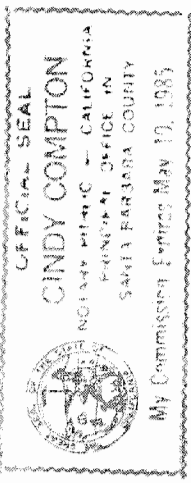 OFFICIAL SEAL
CINDY COMPTON
NOTARY PUBLIC — CALIFORNIA
PRINCIPAL OFFICE IN
SANTA BARBARA COUNTY
My Commission Expires May 10, 1985